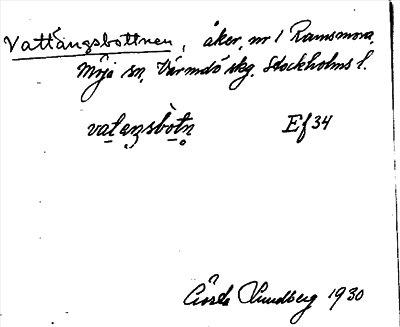 Vattängsbottnen, åker, nr 1 Ramsmora,
Möja sn, Värmdö skg. Stockholms l.
vateŋsbòtn Ef 34
Gösta Lundberg 1930